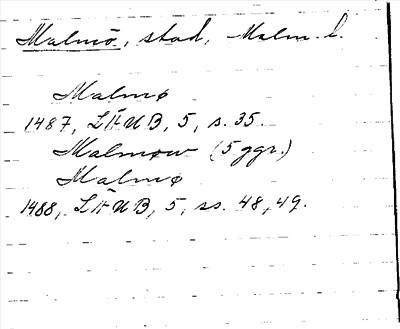 Malmö, stad, Malm. l.
Malmø
1487, LÄUB, 5, s. 35.
Malmøw (5 ggr.)
Malmø
1488, LÄUB, 5, ss. 48, 49.